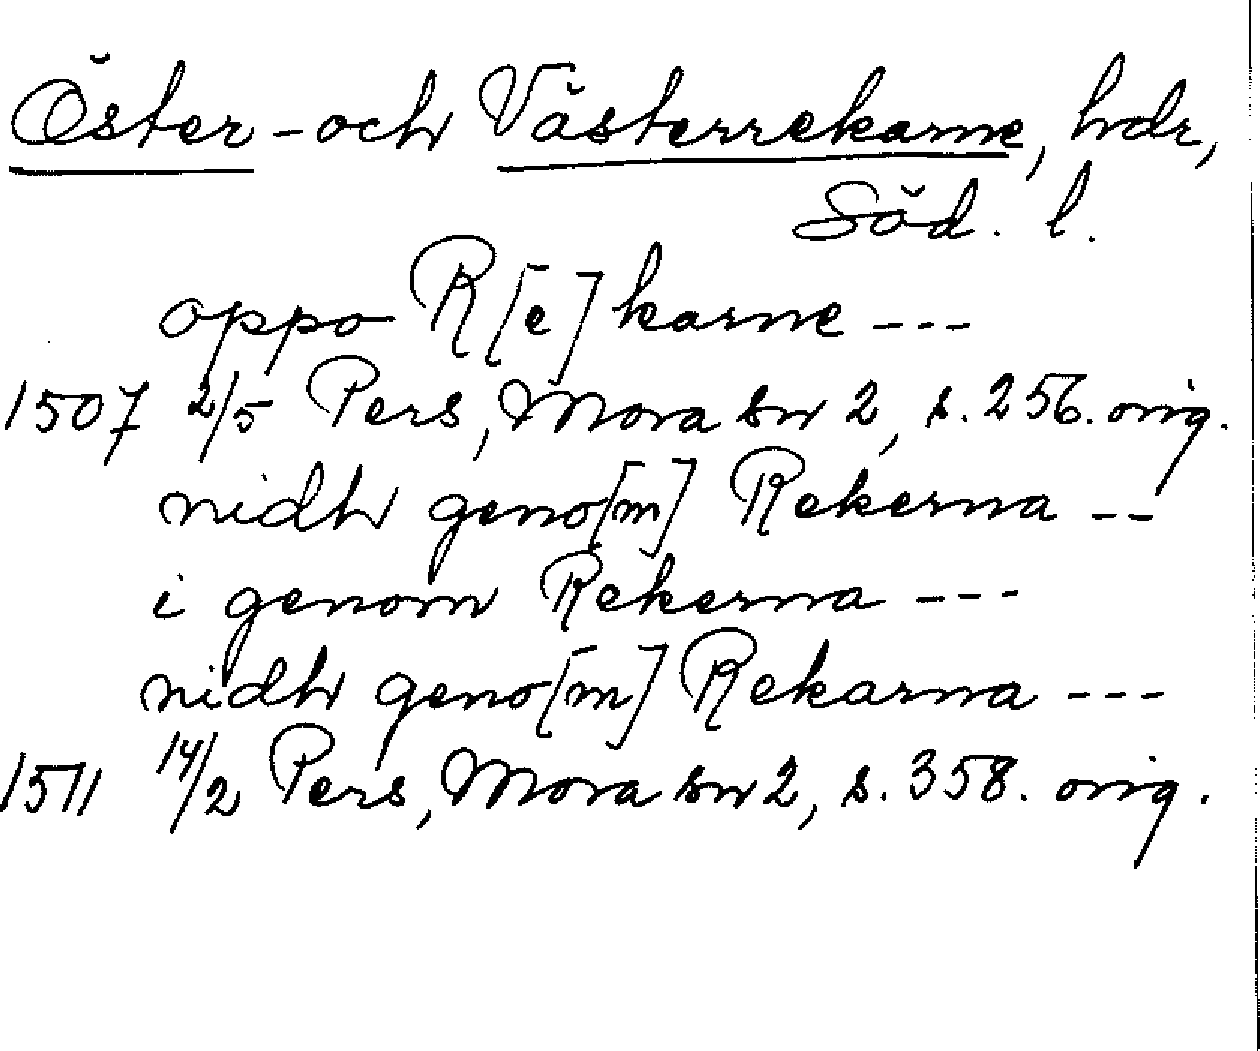 Öster- och Västerrekarne, hdr,
Söd. l.
oppo R[e]karne ---
1507 2/5 Pers, Mora sn 2, s. 256. orig.
nidh geno[m] Rekerna --
i genom Rekerna ---
nidh geno[m] Rekarna ---
1511 14/2 Pers, Mora sn 2, s. 358. orig.